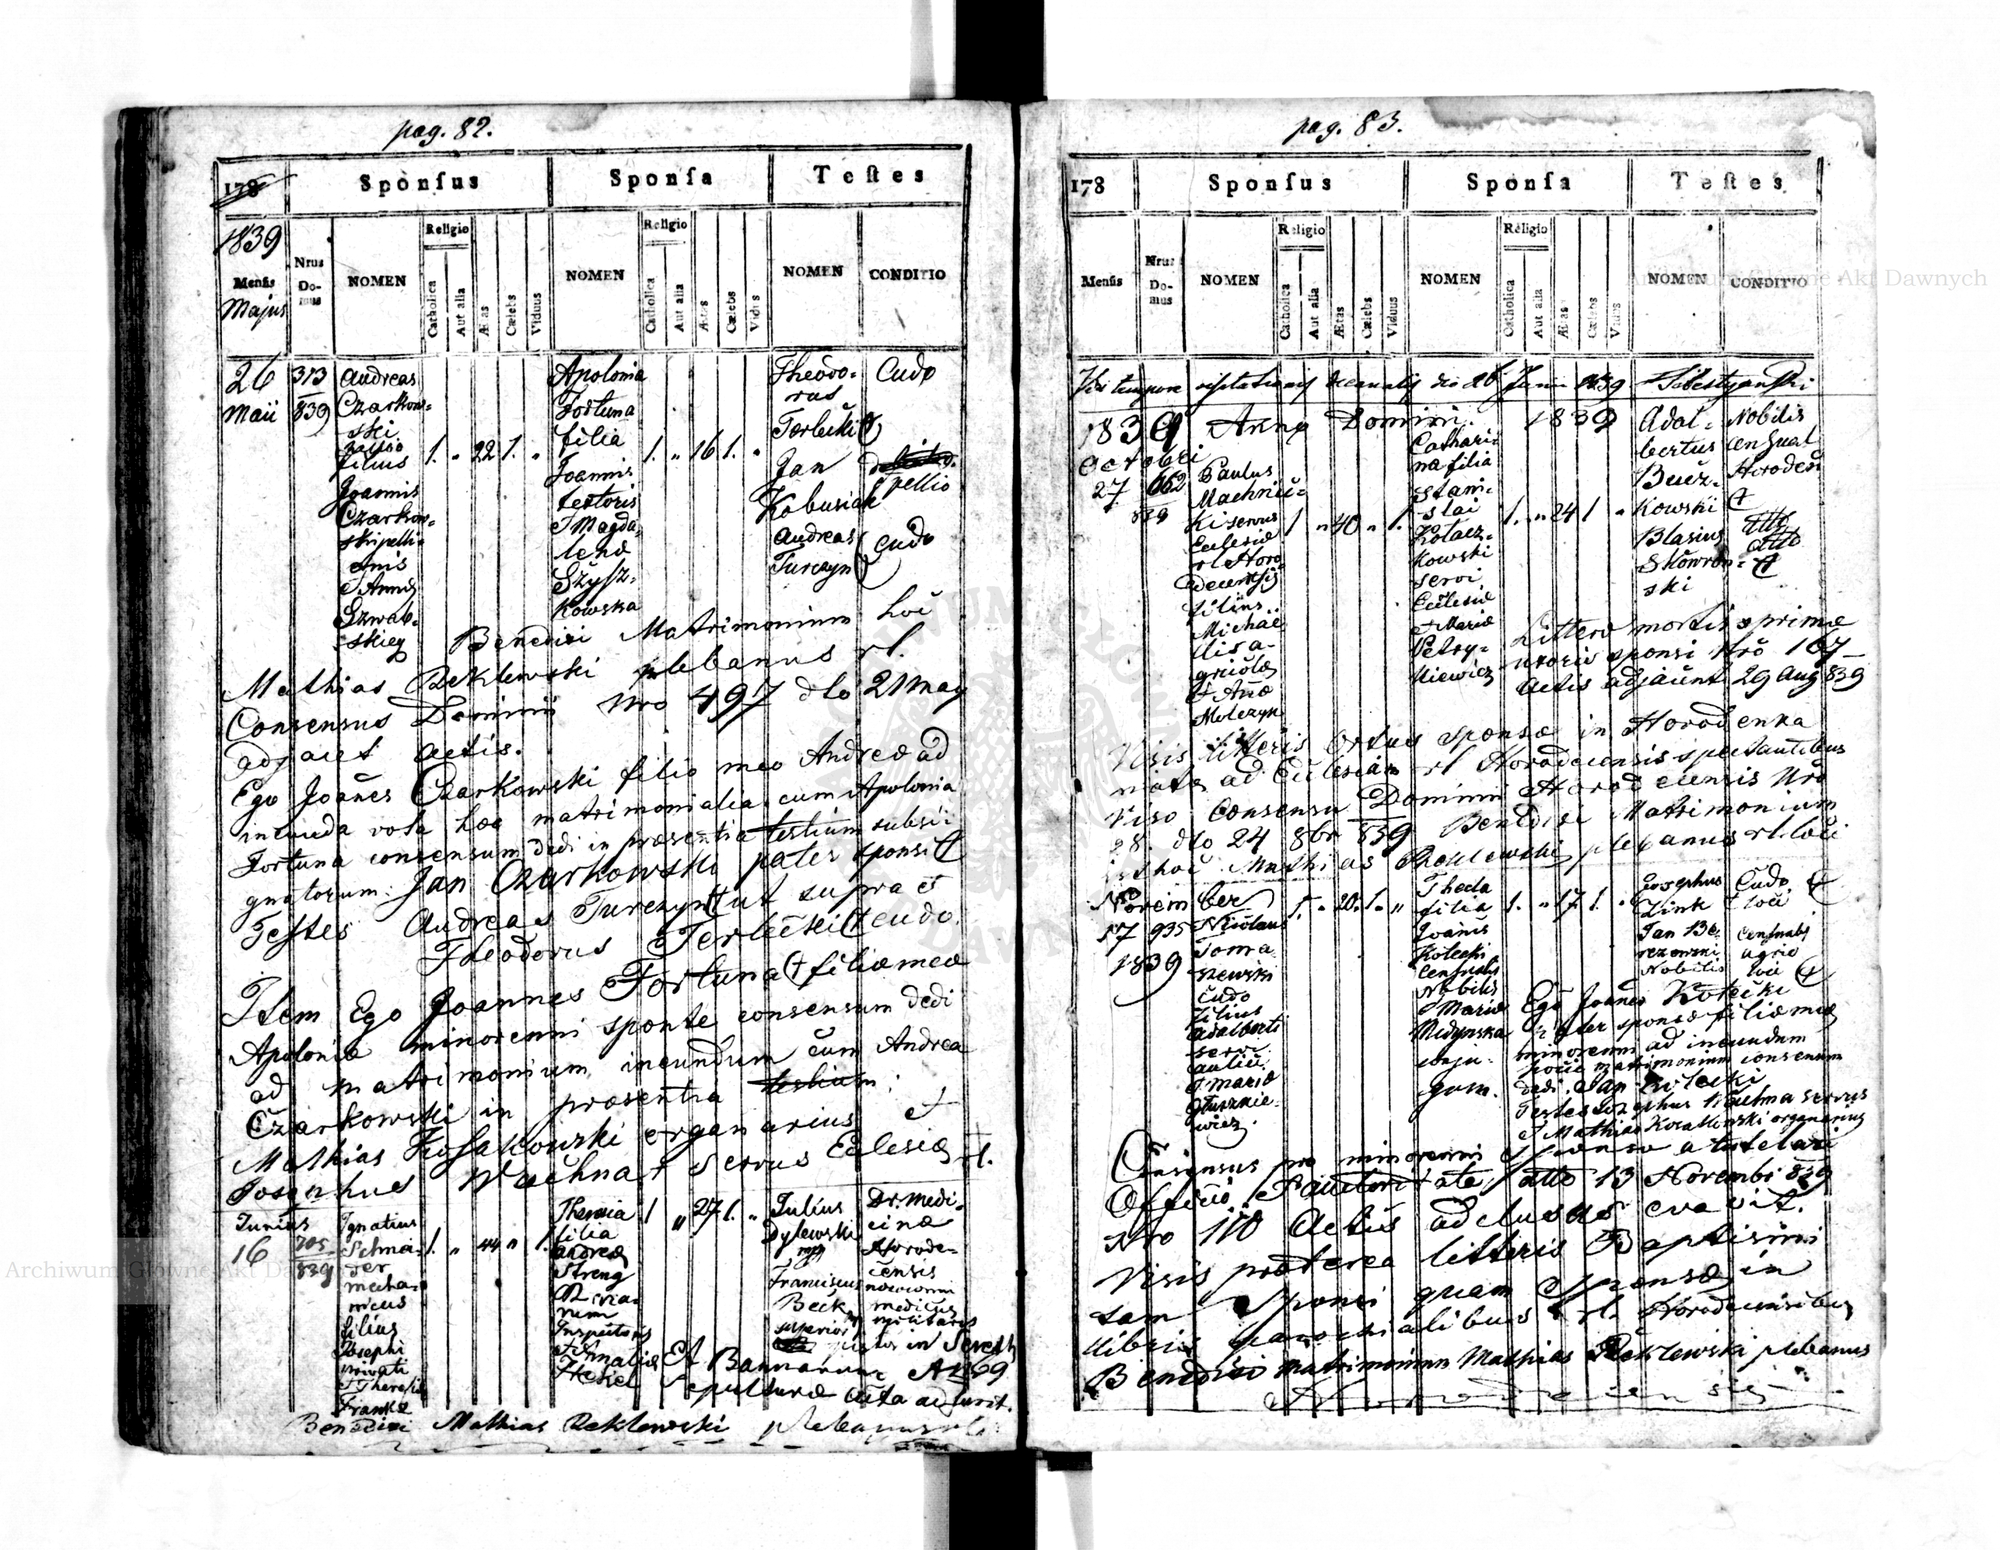 pag. 82.
178
Sponſus
Sponſa
Teſtes
1839
Menſis
Majus
Nrus Domus
NOMEN
Religio
Catholica
Aut alia
Ætas
Cælebs
Viduus
NOMEN
Religio
Catholica
Aut alia
Ætas
Cælebs
Vidua
NOMEN
CONDITIO
26
Maii
373
839
Andreas
Czarkow-
ski
filius
Joannis
Czarkow-
ski pelli-
onis
& Annæ
Szwab-
skieg
1. " 22 1. "
Apolonia
Fortuna
filia
Joannis
textoris
& Magda-
lenæ
Szysz-
kowska
1. " 16 1. "
Theodo-
rus
Terlecki
Jan
Kobusiak
Andreas
Turczyn
Cudo
pellio
Cudo
Benedixi Matrimonium hoc
Mathias Reklewski plebanus rl.
Consensus Dominii Nro 497 dto 21 May
adjacet actis.
Ego Joañes Czarkowski filio meo Andreæ ad
ineunda vota hæc matrimonialia cum Apolonia
Fortuna consensum dedi in præsentia testium subsi-
gnatorum: Jan Czarkowski pater sponsi
Testes Andreas Turczyn ut supra et
Theodorus Terlecki cudo.
Item Ego Joannes Fortuna filiæ meæ
Apoloniæ minorenni sponte consensum dedi
ad matrimonium ineundum cum Andrea
Czarkowski in præsentia testium:
Mathias Kosakowski organarius
Josephus Wachna servus Eclesiæ rl.
Junius
16
705
839
Ignatius
Schnei-
der
mecha-
nicus
filius
Josephi
privati
& Theresiæ
Frankæ
1. " 44 " 1.
Theresia
filia
Andreæ
Streng
Inspectoris
& Amaliæ
1 " 27 1. "
Julius
Dylewski
Franciscus
Beck
superior
Dr. Medi-
cinæ
Horode-
censis
medicus
militaris
in Sereth
Sepulturæ acta ad
Benedixi Mathias Reklewski plebanus
pag. 83.
178
Sponſus
Sponſa
Teſtes
Menſis
Nrus Domus
NOMEN
Religio
Catholica
Aut alia
Ætas
Cælebs
Viduus
NOMEN
Religio
Catholica
Aut alia
Ætas
Cælebs
Vidua
NOMEN
CONDITIO
tempore visitationis decanalis die 26 Junii 1839
1839 Anno Domini 1839
Octobri
27
662
839
Paulus
Machnic-
ki servus
Eclesiæ
rl Horo
decensis
filius
Michae
lis a-
gricolæ
& Añæ
Molczyn
1 " 40 " 1.
Cathari-
na filia
Stani-
slai
Kolacz-
kowski
servi
Eclesiæ
& Mariæ
Petry-
kiewicz
1. " 24 1 "
Adal-
bertus
Bucz-
kowski
Blasius
Skowron-
ski
Nobilis
censual
Horodeñ
Litteræ mortis primæ
uxoris sponsi Nro 167
actis adjacent 29 Aug 839
Visis litteris ortus sponsæ in Horodenka
natæ ad Eclesiam rl Horodecensis spectantibus
Viso Consensu Dominii Horodecensis Nro
28. dto 24 8br 839 Benedixi Matrimonium
isthoc Mathias Reklewski plebanus rl loci
November
17
1839
935
Nicolaus
Toma-
szewski
cudo
filius
Adalberti
servi
& Mariæ
1. " 20. 1. "
Thecla
filia
Joañis
Kotecki
censualis
Nobilis
& Mariæ
Medynska
conju-
gum.
1. " 17 1. "
Josephus
Zink
Jan Be-
rezowski
Nobilis
Cudo
loci
censualis
agric
loci
Ego Joañes Kotecki
pater sponsæ filiæ meæ
minorenni ad ineundum
hocce matrimonium consensum
dedi Jan Kotecki
Testes Josephus Kuchna servus
& Mathias Kosakowski organarius
Consensus pro minorenni sponso a tutelari
Officio dtto 13 Novembri 839
Nro 110 Actis adclusus evasit.
Visis præterea litteris Baptismi
tam Sponsi quam Sponsæ in
libris parochialibus rl. Horodecensibus
Benedixi matrimonium Mathias Reklewski plebanus
Archiwum Główne Akt Dawnych
Archiwum Główne Akt Dawnych